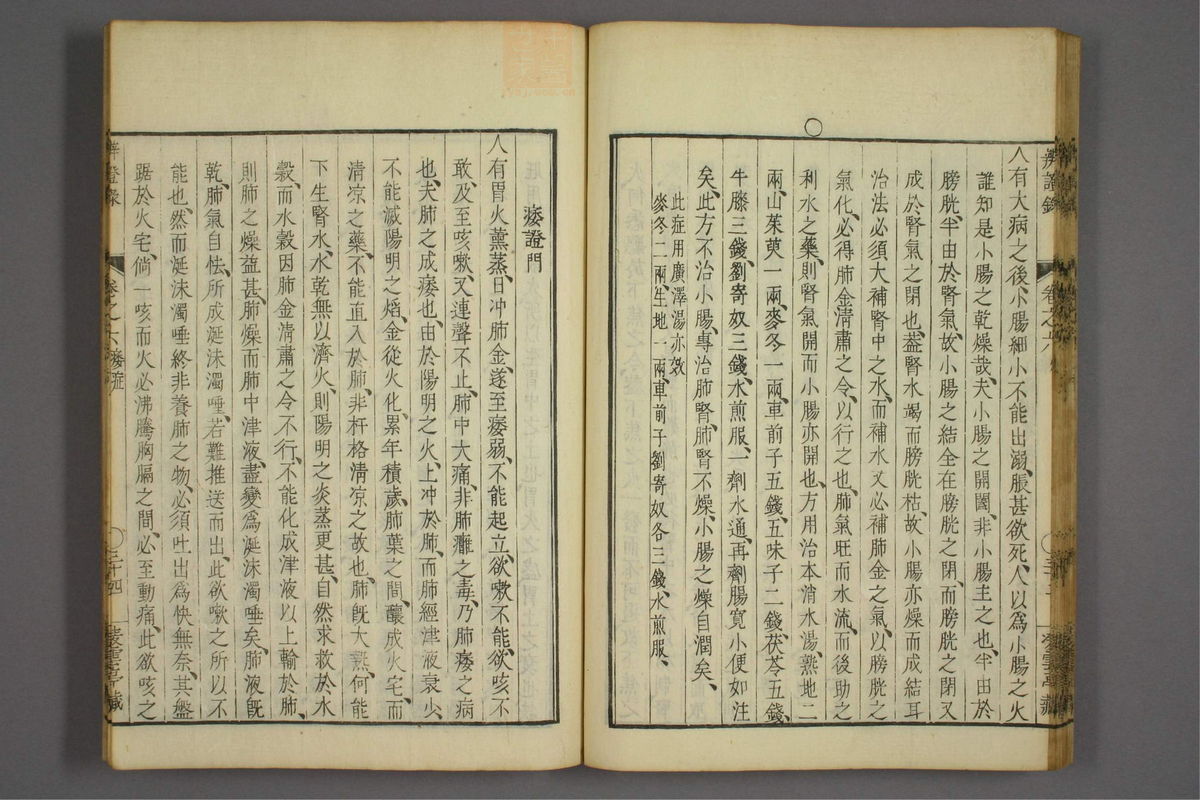 人有大病之後、小腸細小不能出溺、脹甚欲死、人以爲小腸之火
誰知是小腸之乾燥哉、夫小腸之開闔、非小腸主之也、半由於
膀胱、半由於腎氣、故小腸之結全在膀胱之閉、而膀胱之閉又
成於腎氣之閉也、蓋腎水竭而膀胱枯、故小腸亦燥而成結耳
治法必須大補腎中之水、而補水又必補肺金之氣、以膀胱之
氣化、必得肺金清肅之令、以行之也、肺氣旺而水流、而後助之
利水之藥、則腎氣開而小腸亦開也、方用治本消水湯、熟地二
兩、山茱萸一兩、麥冬一兩、車前子五錢、五味子二錢、茯苓五錢、
牛膝三錢、劉寄奴三錢、水煎服、一劑水通、再劑腸寬小便如注
矣、此方不治小腸、專治肺腎、肺腎不燥、小腸之燥自潤矣、
此症用廣澤湯亦效
麥冬二兩、生地一兩、車前子劉寄奴各三錢、水煎服、
辨證錄
卷之六
痿證門
人有胃火薰蒸、日冲肺金、遂至痿弱、不能起立、欲嗽不能、欲咳不
敢、及至咳嗽、又連聲不止、肺中大痛、非肺癰之毒、乃肺痿之病
也、夫肺之成痿也、由於陽明之火、上冲於肺、而肺經津液衰少、
不能滅陽明之焰、金從火化、累年積歲、肺葉之間、釀成火宅、而
清凉之藥、不能直入於肺、非扞格清凉之故也、肺既大熱、何能
下生腎水、水乾無以濟火、則陽明之炎蒸更甚、自然求救於水
穀、而水穀因肺金清肅之令不行、不能化成津液、以上輸於肺、
則肺之燥益甚、肺燥而肺中津液、盡變爲涎沫濁唾矣、肺液既
乾、肺氣自怯、所成涎沫濁唾、若難推送而出、此欲嗽之所以不
能也、然而涎沫濁唾終非養肺之物、必須吐出爲快無奈、其盤
踞於火宅、倘一咳而火必沸騰胸膈之間、必至動痛、此欲咳之
辨證錄
卷之六
痿症
三十四